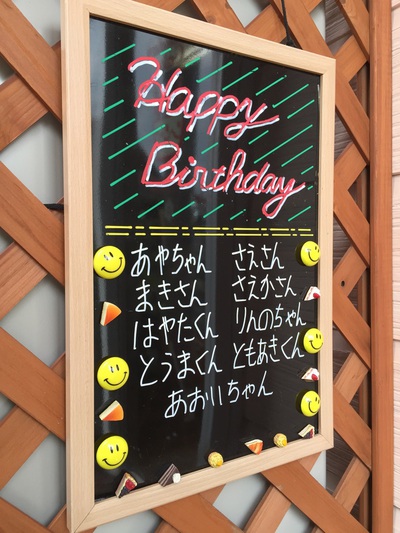 Happy
Birthday
あやちゃん さえさん
まきさん さえかさん
はやたくん りんのちゃん
とうまくん ともあきくん
あおいちゃん